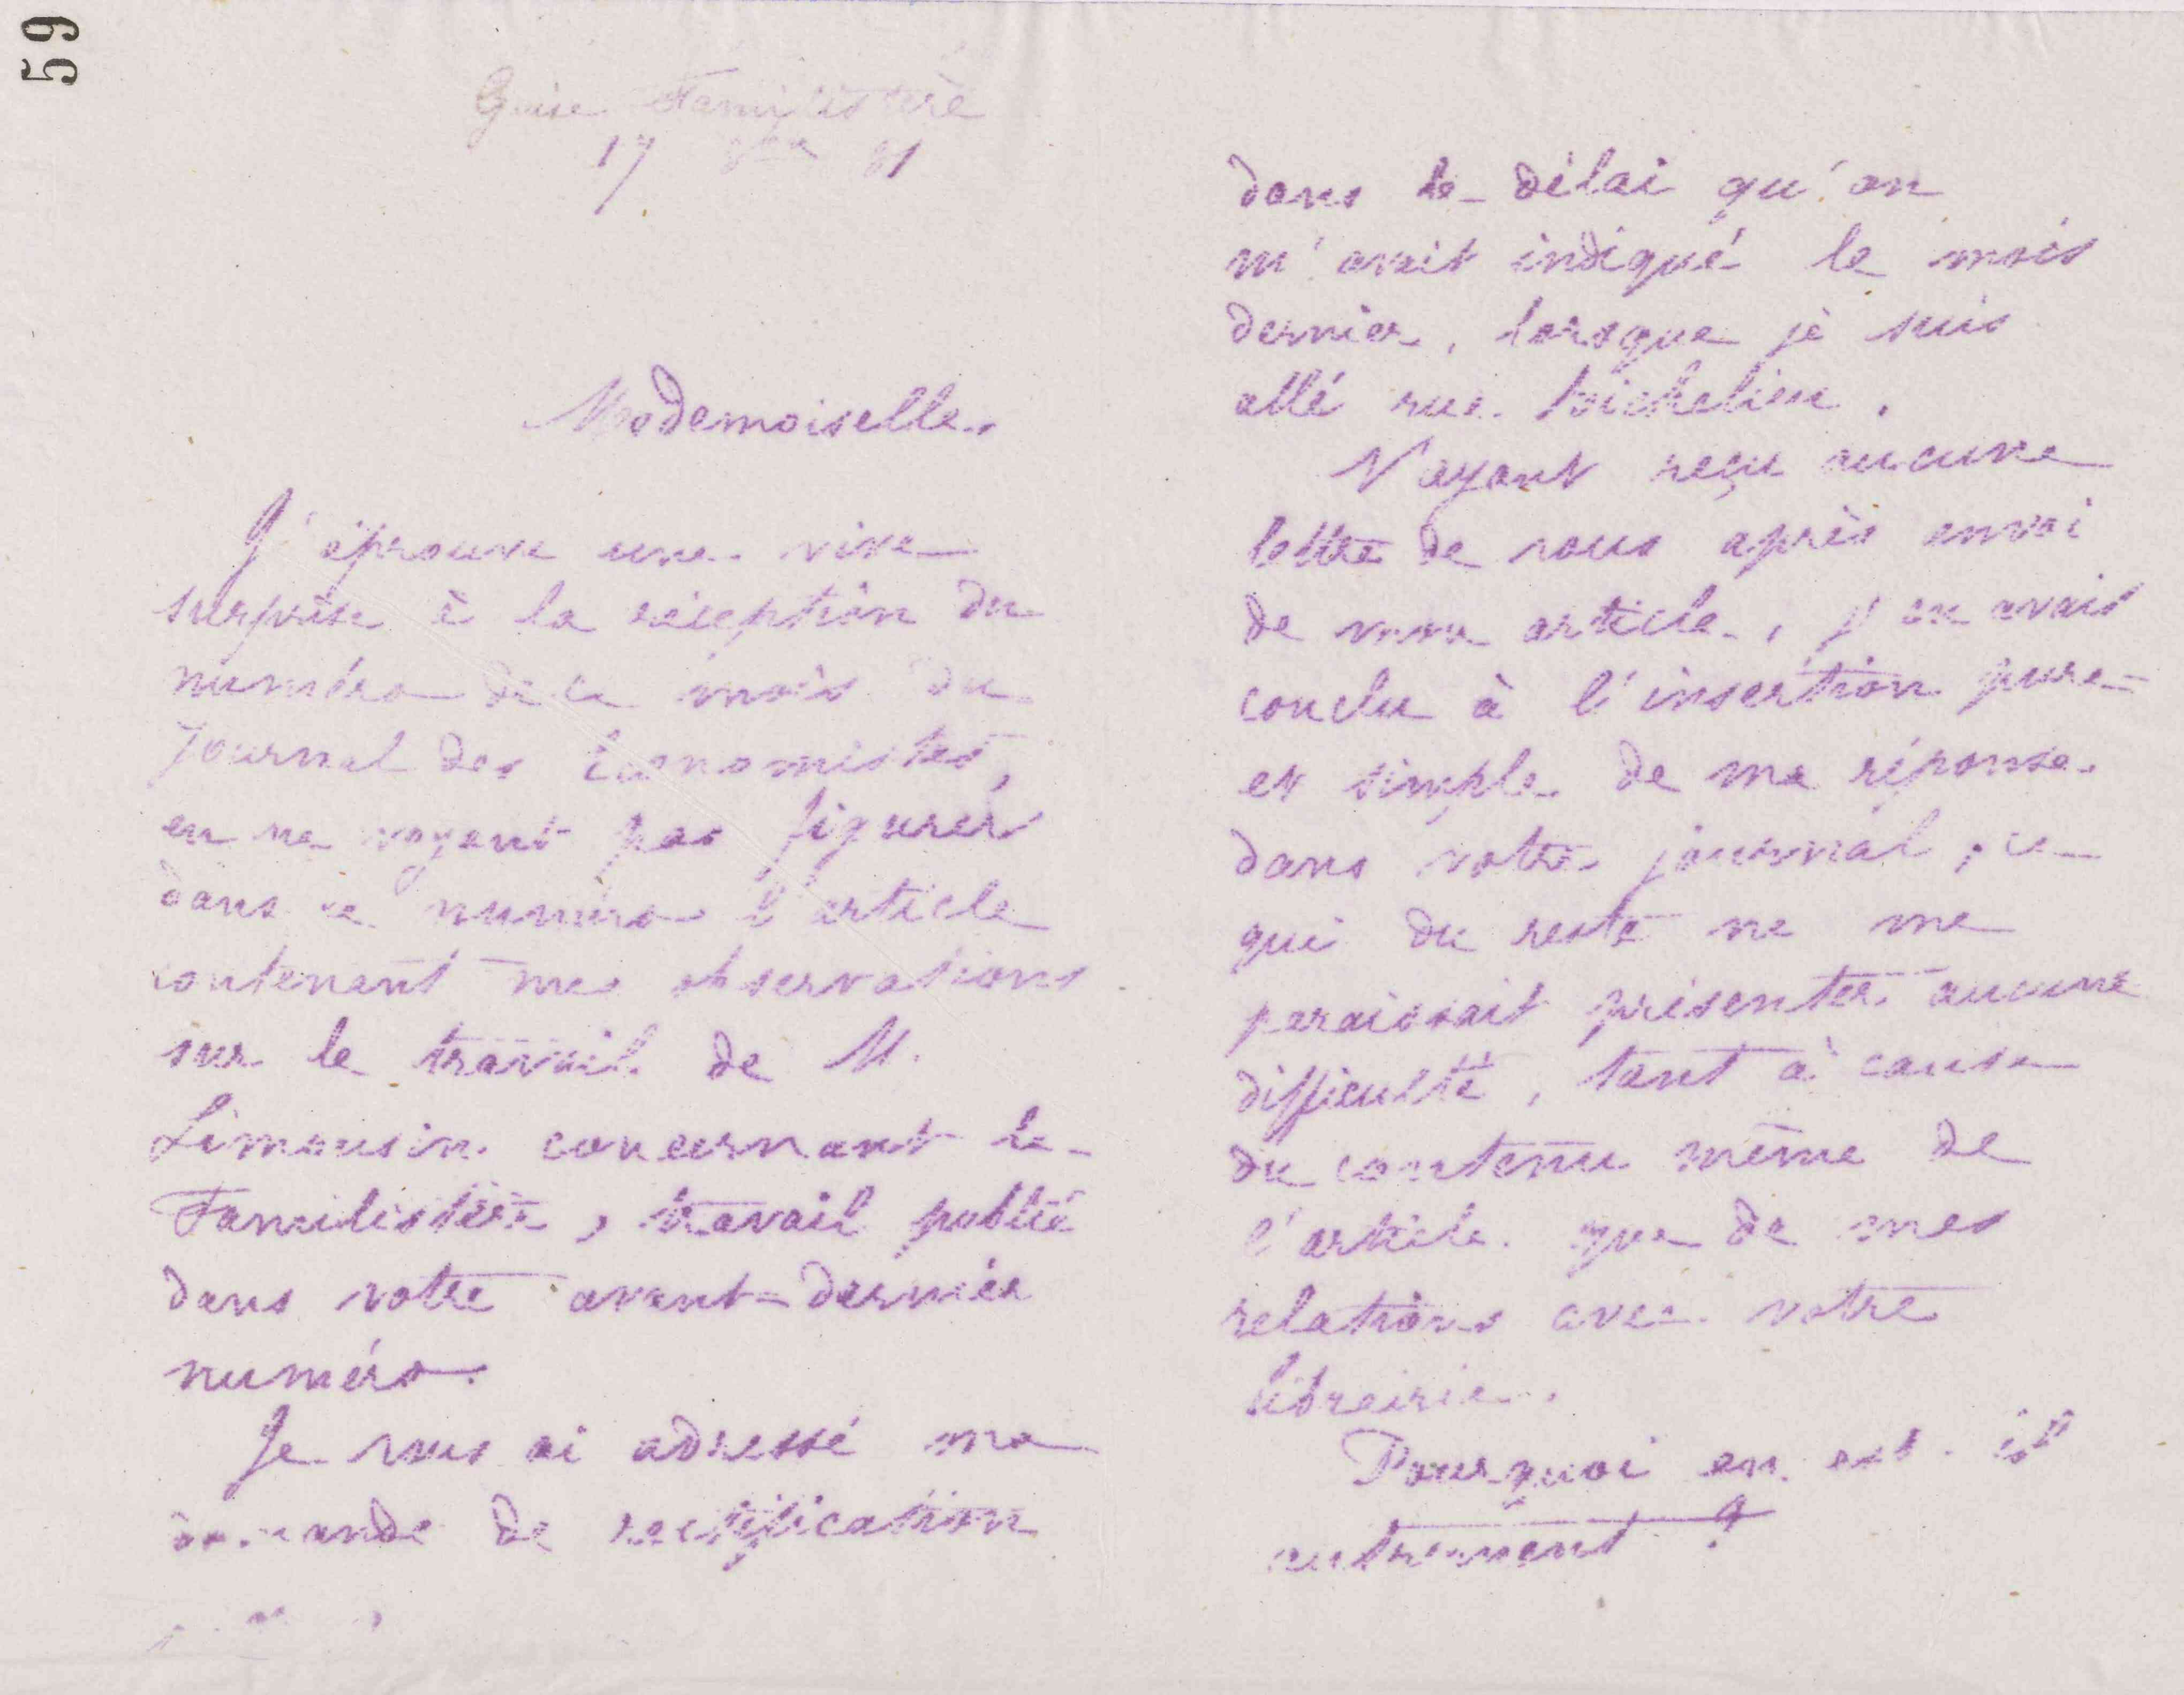 59
Guise Familistère
17 8bre 81
Mademoiselle,
J'éprouve une vive
surprise à la réception du
numéro de ce mois du
Journal des Économistes,
en ne voyant pas figurer
dans ce numéro l'article
contenant mes observations
sur le travail de M.
Limousin concernant le
Familistère, travail publié
dans votre avant-dernier
numéro.
Je vous ai adressé ma
demande de rectification
dans le délai qu'on
m'avait indiqué le mois
dernier, lorsque je suis
allé rue Richelieu.
N'ayant reçu aucune
lettre de vous après envoi
de mon article, j'en avais
conclu à l'insertion pure
et simple de ma réponse
dans votre journal, ce
qui du reste ne me
paraissait présenter aucune
difficulté, tant à cause
du contenu même de
l'article que de mes
relations avec votre
librairie.
Pourquoi en est-il
autrement ?